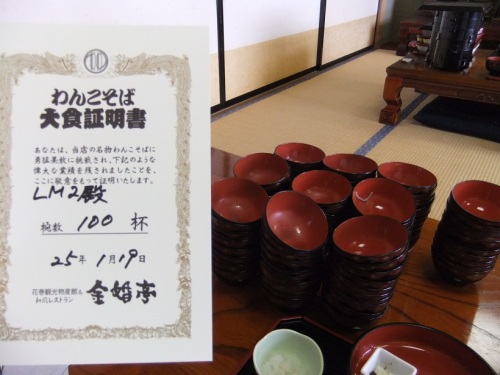 わんこそば
大食証明書
あなたは、当店の名物わんこそばに
勇猛果敢に挑戦され、下記のような
偉大な業績を残されましたことを、
ここに敬意をもって証明いたします。
LM2殿
椀数 100 杯
25年 1月19日
花巻観光物産館&
和風レストラン 金婚亭